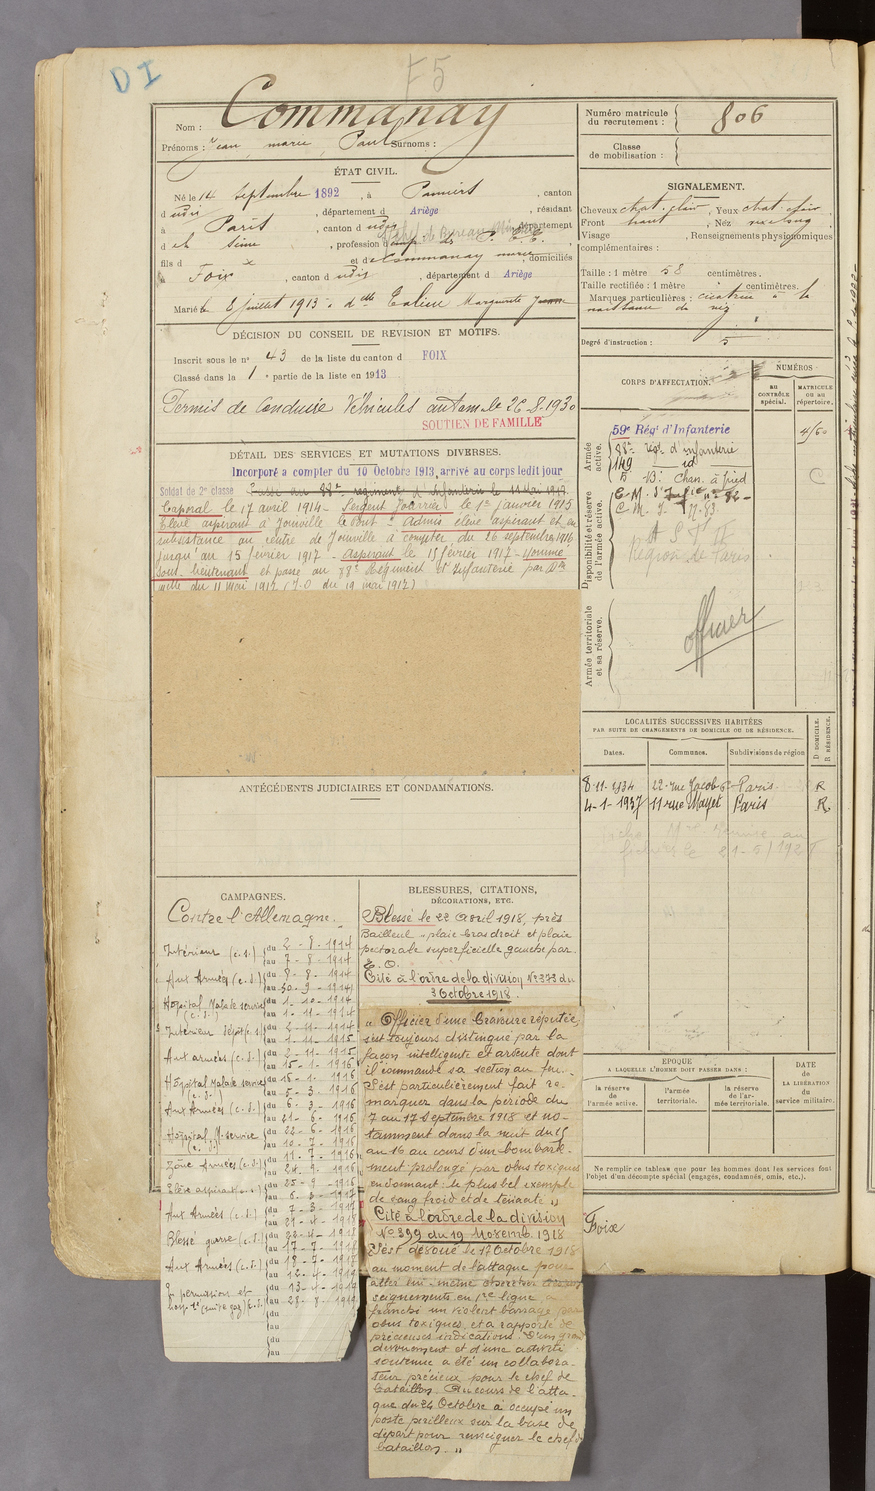 DI
F5
Nom : Commanay
Prénoms : Jean, marie, Paul Surnoms :
Numéro matricule
du recrutement : 806
Classe
de mobilisation :
ÉTAT CIVIL.
Né le 14 septembre 1892, à Pamiers, canton
d udis, département d Ariège, résidant
à Paris, canton d udis, département
d et Seine, profession d emp. des P. T. T.
fils d x et d Commanay marie, domiciliés
à Foix, canton d udis, département d Ariège
Marié le 8 juillet 1913, à dlle Marguerite
SIGNALEMENT.
Cheveux chat-clair, Yeux chat-clair
Front haut, Nez
Visage , Renseignements physionomiques
complémentaires :
Taille : 1 mètre 58 centimètres.
Taille rectifiée : 1 mètre centimètres.
Marques particulières : cicatrice à la
naissance du nez
Degré d'instruction : 5
DÉCISION DU CONSEIL DE REVISION ET MOTIFS.
Inscrit sous le n° 43 de la liste du canton d FOIX
Classé dans la 1e partie de la liste en 1913
Permis de conduire Véhicules autom le 26-8-1930
SOUTIEN DE FAMILLE
DÉTAIL DES SERVICES ET MUTATIONS DIVERSES.
Incorporé a compter du 10 Octobre 1913, arrivé au corps ledit jour
Soldat de 2e classe Passé au 88e régiment d'Infanterie le 11 Mai 1917
Caporal le 17 avril 1914 - Sergent fourrier le 1er janvier 1915
Elève aspirant à Joinville le Pont. Admis élève aspirant et en
subsistance au centre de Joinville à compter du 26 septembre 1916
jusqu'au 15 février 1917 - Aspirant le 15 février 1917 - nommé
Sous-lieutenant et passé au 88e Régiment d'Infanterie par Don
melle du 11 mai 1917 (J.O du 19 mai 1917)
ANTÉCÉDENTS JUDICIAIRES ET CONDAMNATIONS.
CORPS D'AFFECTATION.
NUMÉROS
AU CONTRÔLE spécial.
MATRICULE OU AU répertoire.
Armée active.
59e Régt d'Infanterie
4/60
88e rég. d'infanterie
149 id
Disponibilité et réserve de l'armée active.
C. M. d'Infie n° 82
C. M. I. n° 83
Région de Paris
Armée territoriale et sa réserve.
officier
LOCALITÉS SUCCESSIVES HABITÉES
PAR SUITE DE CHANGEMENTS DE DOMICILE OU DE RÉSIDENCE.
Dates.
Communes.
Subdivisions de région
D DOMICILE.
R RÉSIDENCE.
8-11-1934 22 rue Jacob 6e Paris R
4-1-1937 11 rue Mayet Paris R
CAMPAGNES.
Contre l'Allemagne.
Intérieur (c.s.) du 2-8-1914
au 7-8-1914
Aux Armées (c.d.) du 8-8-1914
au 30-9-1914
Hôpital Malade service (c.s.) du 1-10-1914
au 1-11-1914
Intérieur dépôt (c.s.) du 2-11-1914
au 1-11-1915
Aux armées (c.d.) du 2-11-1915
au 15-1-1916
Hôpital Malade service (c.d.) du 16-1-1916
au 5-3-1916
Aux Armées (c.d.) du 6-3-1916
au 21-6-1916
Hôpital M. service (c.d.) du 22-6-1916
au 10-7-1916
Zône Armées (c.d.) du 11-7-1916
au 24-9-1916
Elève aspirant (c.s.) du 25-9-1916
au 6-3-1917
Aux Armées (c.d.) du 7-3-1917
au 21-4-1918
Blessé guerre (c.d.) du 22-4-1918
au 17-7-1918
Aux Armées (c.d.) du 18-7-1918
au 12-4-1919
En permission et du 13-4-1919
au 28-8-1919
du
au
du
au
BLESSURES, CITATIONS,
DÉCORATIONS, ETC.
Blessé le 22 avril 1918, près
Bailleul - plaie bras droit et plaie
pectorale superficielle gauche par
E. O.
Cité à l'ordre de la division N° 373 du
3 Octobre 1918.
« Officier d'une bravoure réputée,
s'est toujours distingué par la
façon intelligente et ardente dont
il commande sa section au feu.
S'est particulièrement fait re-
marquer dans la période du
7 au 17 Septembre 1918 et no-
tamment dans la nuit du 15
au 16 au cours d'un bombarde-
ment prolongé par obus toxiques
en donnant le plus bel exemple
de sang froid et de ténacité »
Cité à l'ordre de la division
N° 399 du 19 Novemb. 1918
S'est dévoué le 17 Octobre 1918
au moment de l'attaque pour
aller lui-même chercher des ren-
seignements en 1re ligne a
franchi un violent barrage par
obus toxiques, et a rapporté de
précieuses indications. D'un gran
dévouement et d'une activité
soutenue a été un collabora-
teur précieux pour le chef de
bataillon. Au cours de l'atta-
que du 24 Octobre a occupé un
poste périlleux sur la base de
départ pour renseigner le chef de
bataillon. »
EPOQUE
A LAQUELLE L'HOMME DOIT PASSER DANS :
la réserve de l'armée active.
l'armée territoriale.
la réserve de l'armée territoriale.
DATE
de
LA LIBÉRATION
du
service militaire.
Ne remplir ce tableau que pour les hommes dont les services font
l'objet d'un décompte spécial (engagés, condamnés, omis, etc.).
Foix